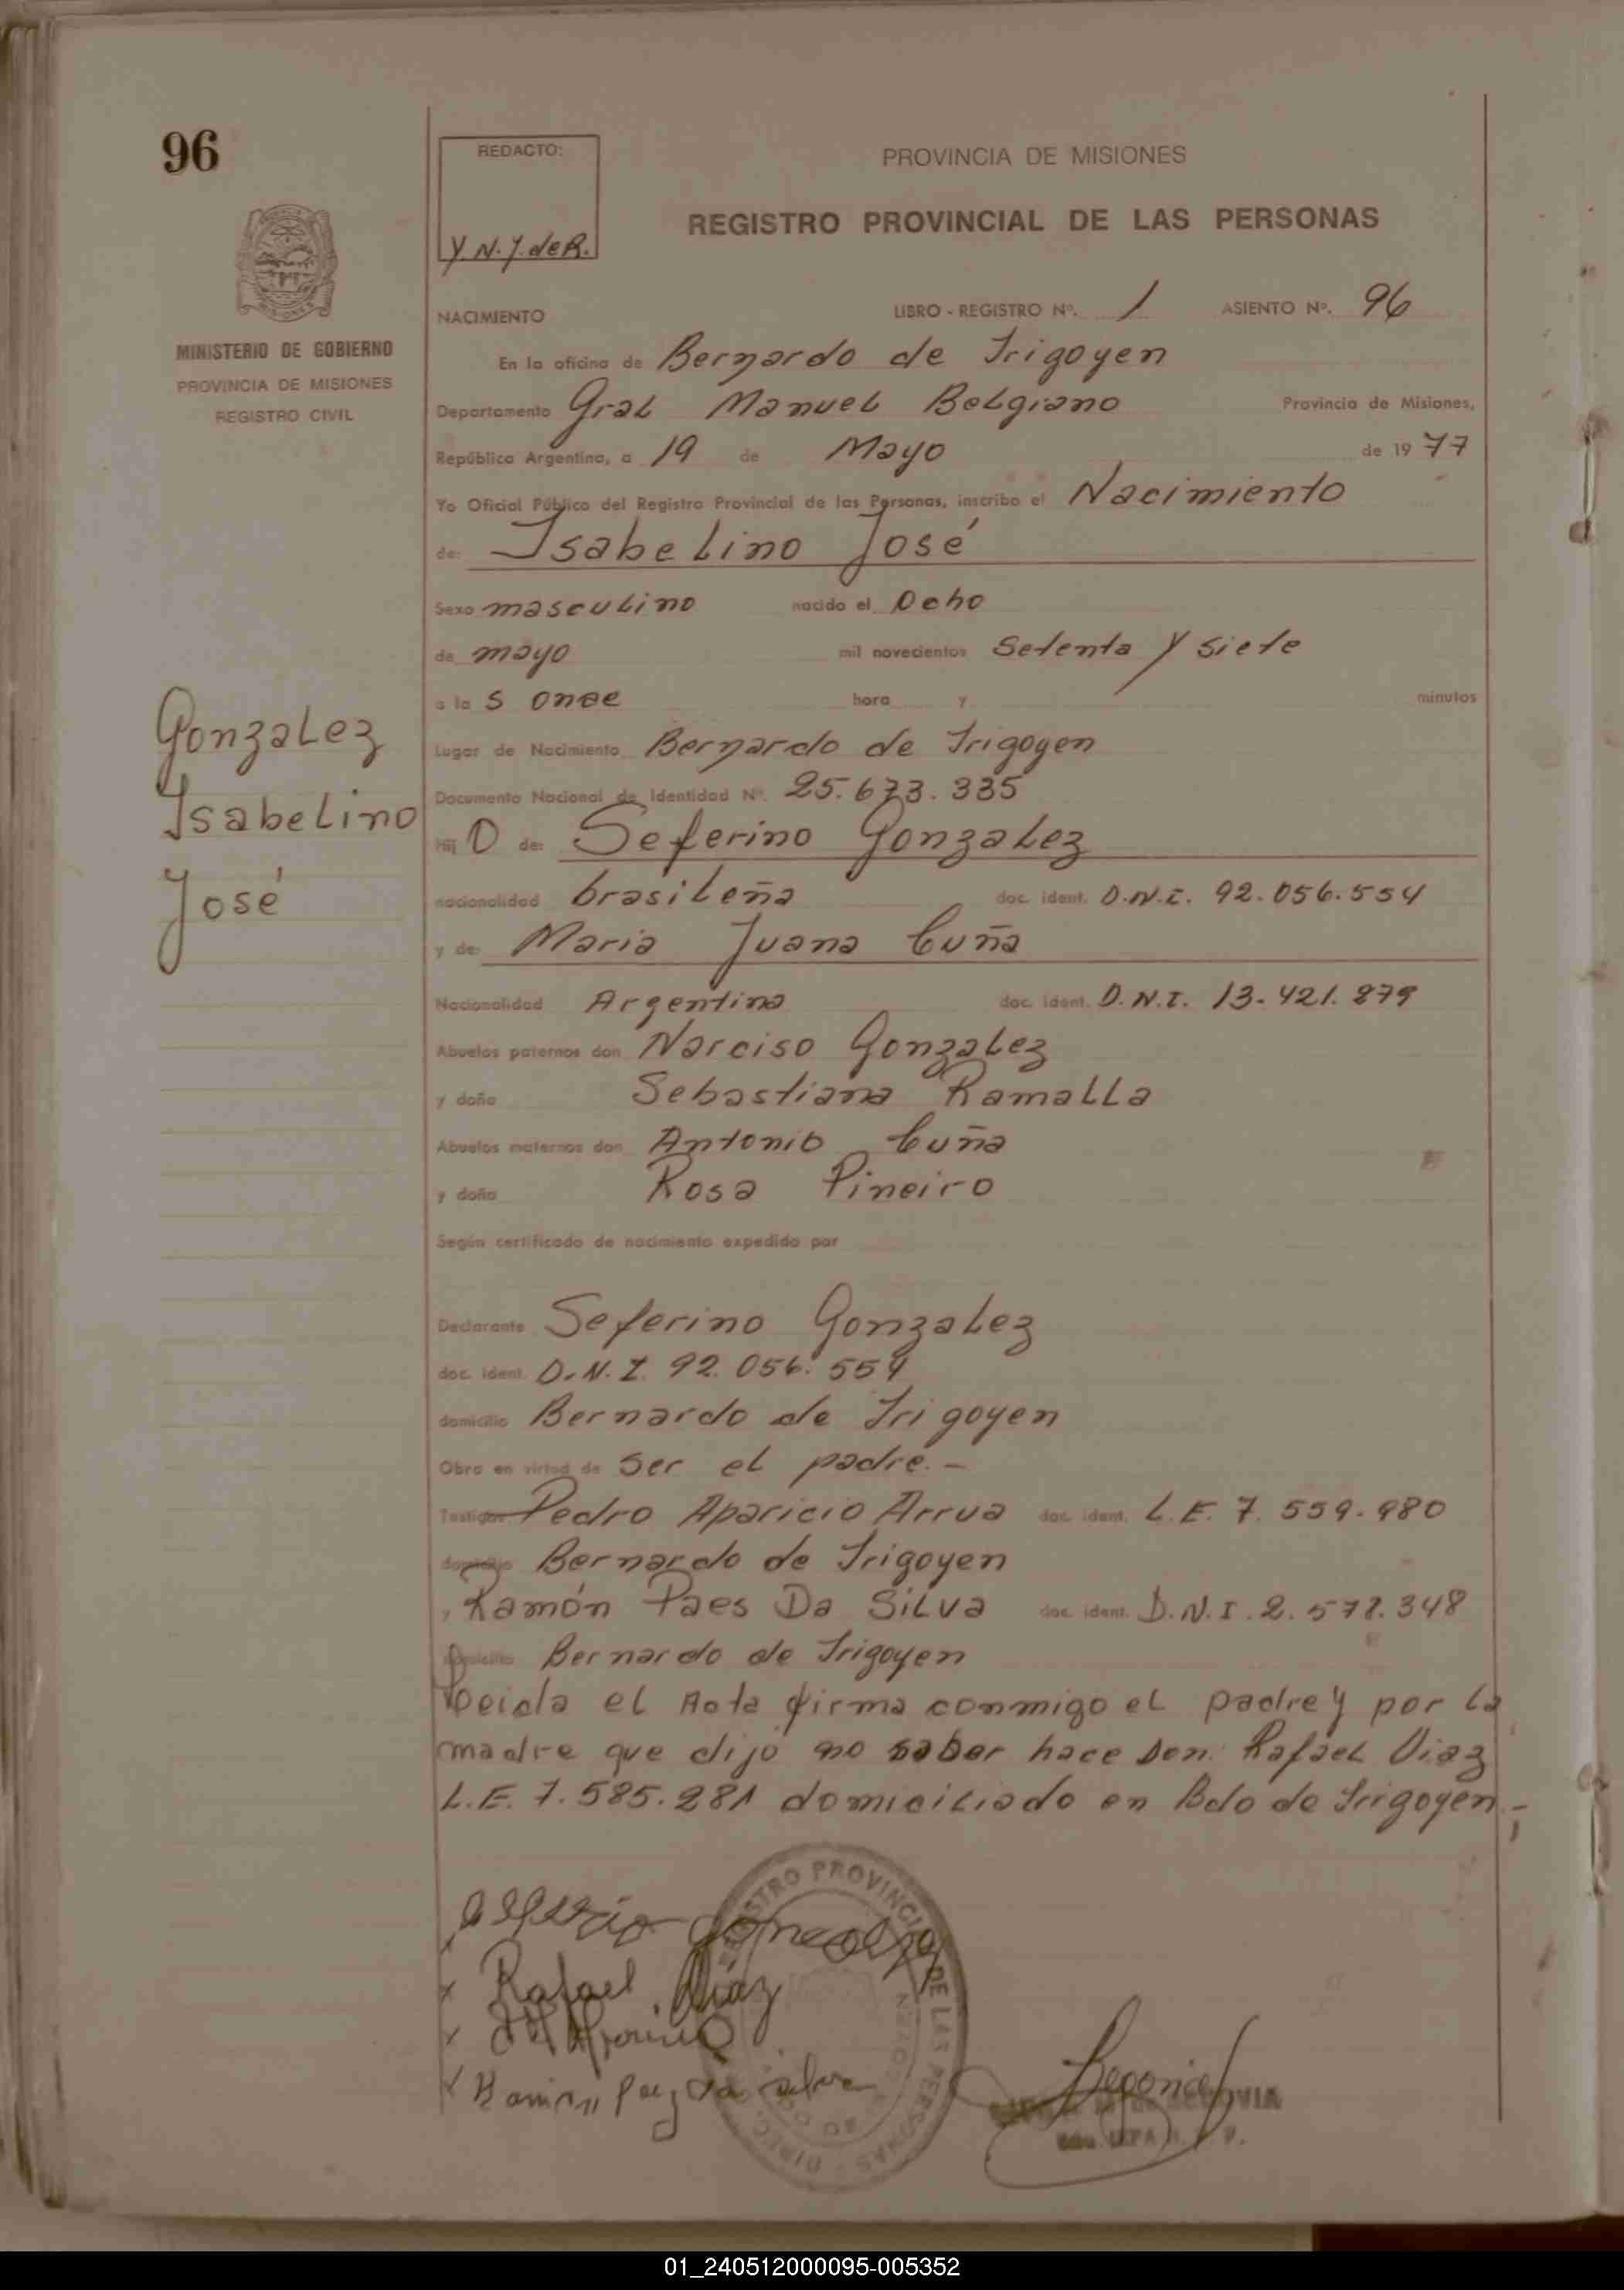 96
REDACTO:
Y.N.J.deR.
PROVINCIA DE MISIONES
REGISTRO PROVINCIAL DE LAS PERSONAS
MINISTERIO DE GOBIERNO
PROVINCIA DE MISIONES
REGISTRO CIVIL
NACIMIENTO LIBRO - REGISTRO Nº. 1 ASIENTO Nº. 96
En la oficina de Bernardo de Irigoyen
Departamento Gral Manuel Belgrano Provincia de Misiones,
República Argentina, a 19 de Mayo de 1977
Yo Oficial Público del Registro Provincial de las Personas, inscribo el Nacimiento
de: Isabelino José
Sexo masculino nacido el Ocho
de mayo mil novecientos Setenta y siete
a las once hora y minutos
Gonzalez
Isabelino
José
Lugar de Nacimiento Bernardo de Irigoyen
Documento Nacional de Identidad Nº. 25.673.335
Hijo de: Seferino Gonzalez
nacionalidad brasileña doc. ident. D.N.I. 92.056.554
y de: Maria Juana Cuña
Nacionalidad Argentina doc. ident. D.N.I. 13.421.879
Abuelos paternos don Narciso Gonzalez
y doña Sebastiana Ramalla
Abuelos maternos don Antonio Cuña
y doña Rosa Pineiro
Según certificado de nacimiento expedido por
Declarante Seferino Gonzalez
doc. ident. D.N.I. 92.056.554
domicilio Bernardo de Irigoyen
Obra en virtud de ser el padre.-
Testigos Pedro Aparicio Arrua doc. ident. L.E. 7.559.980
domicilio Bernardo de Irigoyen
y Ramón Paes Da Silva doc. ident. D.N.I. 2.578.348
domicilio Bernardo de Irigoyen
Leida el Acta firma conmigo el padre y por la
madre que dijo no saber hace Don: Rafael Diaz
L.E. 7.585.281 domiciliado en Bdo de Irigoyen.-
x Rafael Diaz
x Ramon Paez da silva
REGISTRO PROVINCIAL DE LAS PERSONAS
01_240512000095-005352